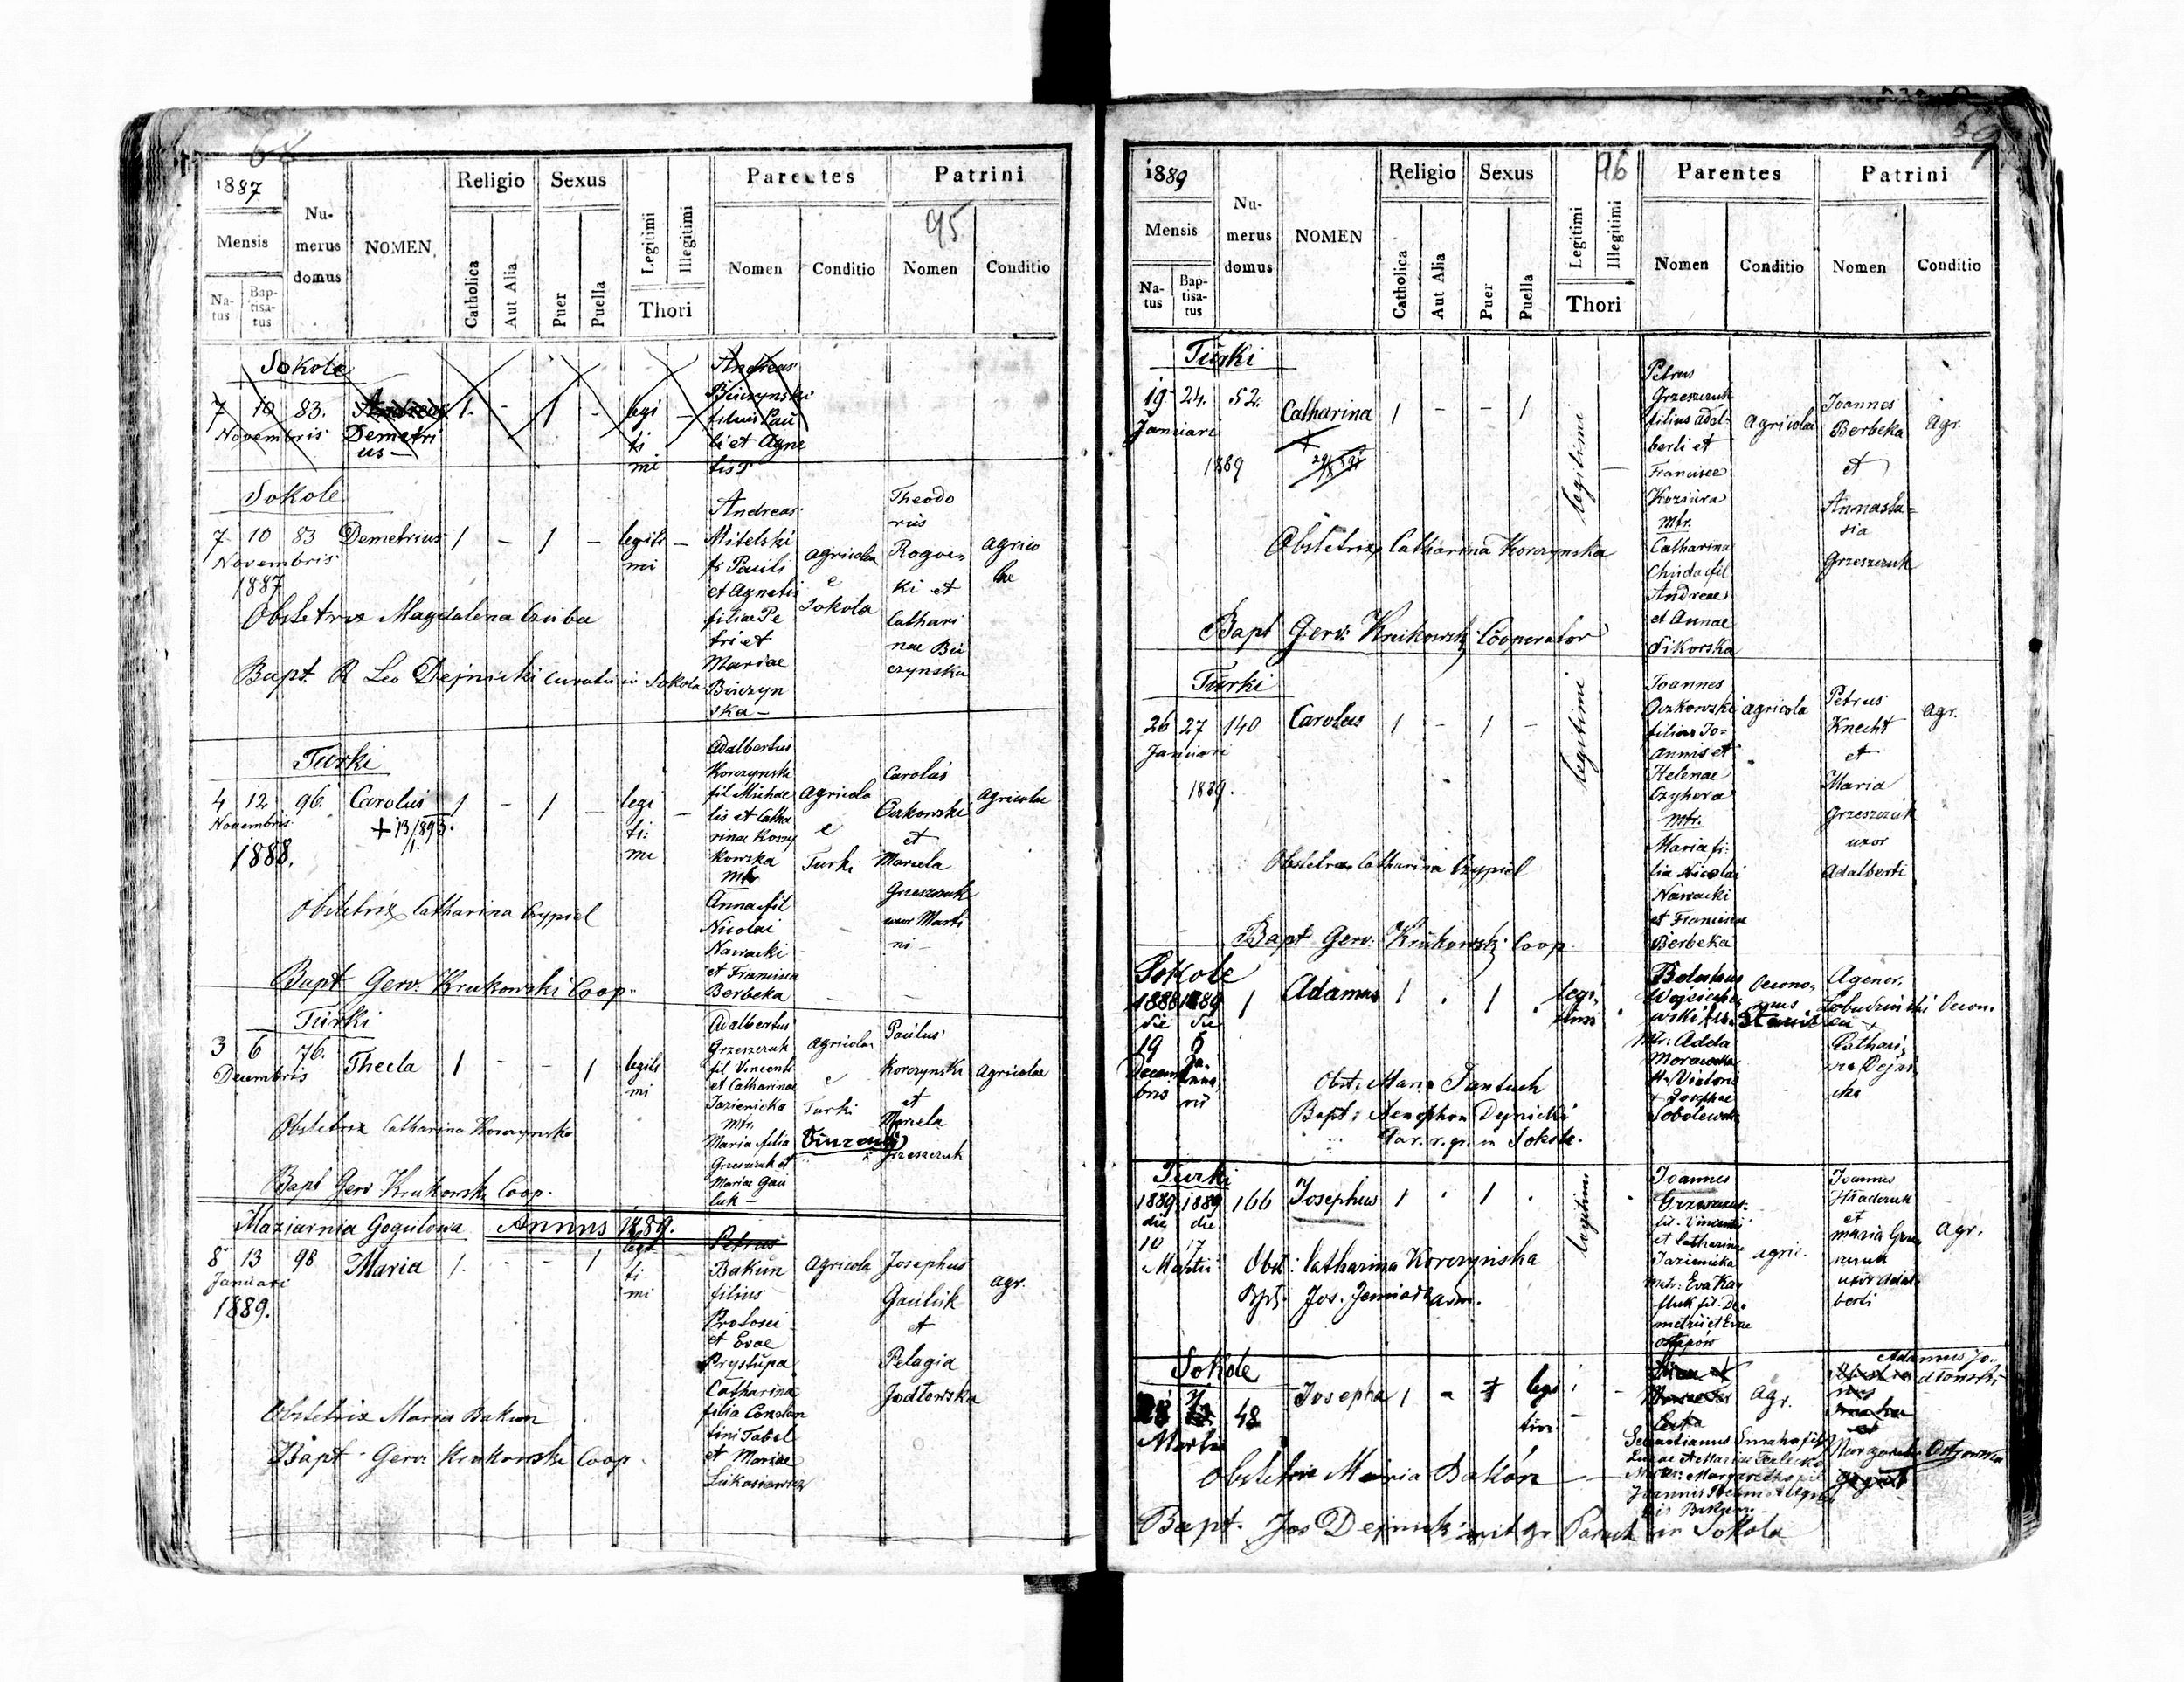 1887
Mensis
Na-
tus
Bap-
tisa-
tus
Nu-
merus
domus
NOMEN
Religio
Catholica
Aut Alia
Sexus
Puer
Puella
Legitimi
Illegitimi
Thori
Parentes
Nomen
Conditio
Patrini
95
Nomen
Conditio
Sokole
7 10 83. Andreas 1. - 1 - legi
Novembris Demetri
us -
ti
mi
Andreas
Biczynski
filius Pau
li et Agne
tis
Sokole
7 10 83 Demetrius 1 - 1 - legiti -
Novembris
mi
1887
Andreas
Mitelski
fs Pauli
et Agnetis
filiae Pe
tri et
Mariae
Biczyn
ska -
agricolae
e
Sokola
Theodo
rus
Rogow
ki et
Cathari
nae Bu
czynska
agrico
lae
Obstetrix Magdalena Czuba
Bapt. R Leo Dejnicki curatus in Sokola
Turki
4 12 96. Carolus 1 - 1 - legi -
Novembris + 13/1 893.
ti:
1888.
mi
Adalbertus
Korczynski
fil Michae
lis et Catha
rinae Koszy
kowska
Mtr
Anna fil
Nicolai
Nawacki
et Francisca
Berbeka
Agricola
e
Turki
Carolus
Oczkowski
et
Marcela
Grzeszczuk
uxor Marti
ni -
agricolae
Obstetrix Catharina Czypiel
Bapt Gerv. Krukowski Coop.
Turki
3 6 76. Thecla 1 - - 1 legiti
Decembris
mi
Adalbertus
Grzeszczuk
fil Vincenti
et Catharinae
Jazienicka
Mtr.
Maria filia
Grzeszczuk et
Mariae Gau
luk -
Agricolae
e
Turki
Vinzenti
Paulus
Korczynski
et
Marcela
Grzeszczuk
Agricolae
Obstetrix Catharina Korczynska
Bapt Gerv Krukowski Coop.
Maziarnia Gogulowa Annus 1889.
8 13 98 Maria 1. - - 1 legi
Januari
ti
1889.
mi
Petrus
Bakun
filius
Protosei
et Evae
Prystupa
Catharina
filia Constan
tini Tabel
et Mariae
Lukasiewicz
Agricola
Josephus
Gauluk
et
Pelagia
Jodłowska
agr.
Obstetrix Maria Bakun
Bapt Gerv Krukowski Coop.
69
1889
Mensis
Na-
tus
Bap-
tisa-
tus
Nu-
merus
domus
NOMEN
Religio
Catholica
Aut Alia
Sexus
Puer
Puella
96
Legitimi
Illegitimi
Thori
Parentes
Nomen
Conditio
Patrini
Nomen
Conditio
Turki
19 24. 52. Catharina 1 - - 1 legitimi -
Januari
1889
Petrus
Grzeszczuk
filius Adal-
berti et
Francisce
Koziura
Mtr.
Catharina
Chuda fil
Andreae
et Annae
Sikorska
Agricolae
Joannes
Berbeka
et
Annasta-
sia
Grzeszczuk
Agr.
Obstetrix Catharina Korczynska
Bapt Gerv: Krukowski Cooperator
Turki
26 27 140 Carolus 1 - 1 - legitimi
Januari
1889.
Joannes
Oczkowski
filius Jo-
annis et
Helenae
Czyhera
Mtr.
Maria fi-
lia Nicolai
Nawacki
et Francisca
Berbeka
Agricola
Petrus
Knecht
et
Maria
Grzeszczuk
uxor
Adalberti
Agr.
Obstetrix Catharina Czypiel
Bapt Gerv. Krukowski Coop.
Sokole
1888 1889 1 Adamus 1 . 1 . legi
die die
timi
19
Decem
bris
Ja-
nua
rii
Wojciecho
wski
Mtr. Adela
Morawska
Victoris
Josephae
Sobolewska
Oecono-
mus
Agenor
Cathari
na Dejni
cka
Oecon.
Obst. Maria Pantuch
Bapt: Xenophon Dejnicki
Par. r. gr. in Sokole.
Turki
1889 1889 166 Josephus 1 . 1 . legitimi
die die
10 17
Martii
Joannes
Grzeszczuk
fil. Vincenti
et Catharinae
Jazienicka
mtr: Eva Ka
fluk fil. De-
metrii et Evae
Ostapów
agric.
Joannes
Hladczuk
et
Maria Grze
szczuk
uxor Adal
berti
Agr.
Obst: Catharina Korczynska
Bpt. Jos. Jemiodr adm.
Sokole
48 Josepha 1 - 1 legi
Martii
timi
Agr.
Sebastianus Smaha fil
Lucae et Mariae Terlecka
Mater: Margaretha fil
Joannis
Bakun
Adamus Jo-
dłowski
Margareta Ostrowska
Obstetrix Maria Bakun
Bapt. Jos Dejnicki rit gr Paroch in Sokola